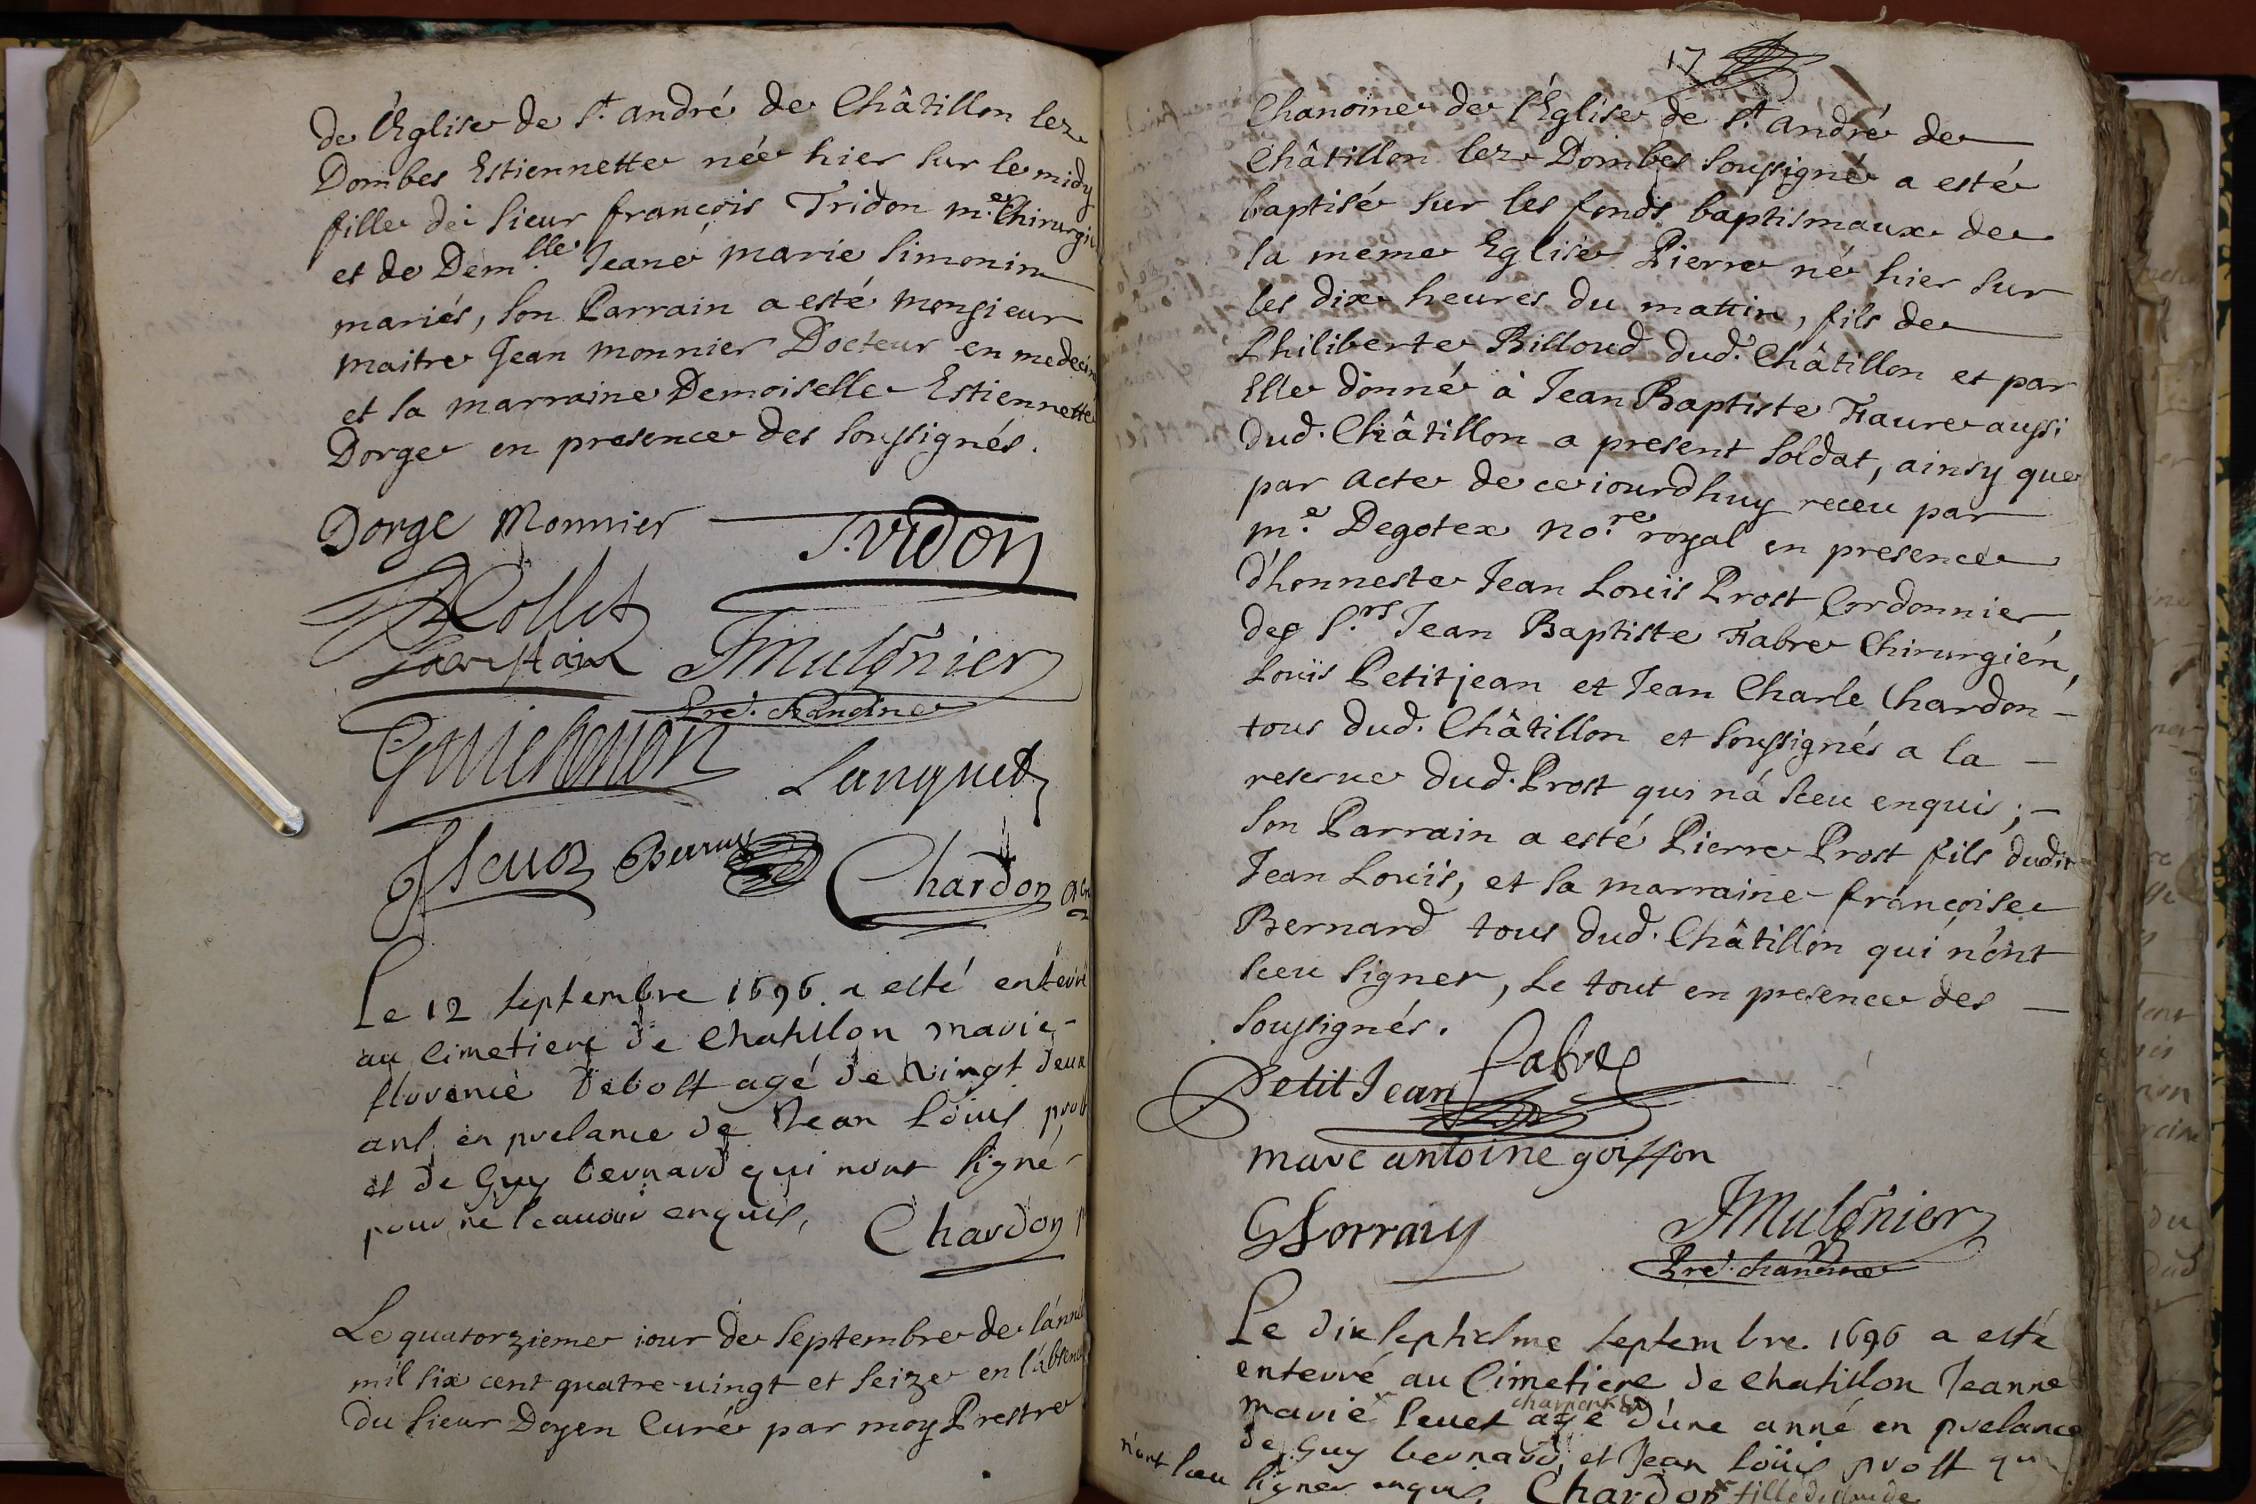 de l'Eglise de St. André de Châtillon lez
Dombes Estiennette née hier sur le midy
fille de sieur françois Tridon me. Chirurgie
et de Demlle. Jeane marie Simonin
mariés, son Parrain a esté monsieur
maitre Jean monnier Docteur en medecin
et la marraine Demoiselle Estiennette
Dorge en presence des soussignés.
Dorge Monnier
Tridon
Collet
JMulonier
Pre. chanoine
Guichenon
Languet
Chardon
Le 12 septembre 1696. a esté enterré
au Cimetiere de Chatillon marie
florence Debost agé de vingt deux
ans, en presance de Jean Louis prost
et de Guy bernard qui nont signé
pour ne scauoir enquis,
Chardon
Le quatorzieme iour de septembre de l'année
mil six cent quatre-uingt et seize en l'absence
du sieur Doyen Curé par moy Prestre
17
Chanoine de l'Eglise de St. André de
Châtillon lez Dombes soussigné a esté
baptisé sur les fonds baptismaux de
la meme Eglise Pierre né hier sur
les dix heures du mattin, fils de
Philiberte Billoud dud. Châtillon et par
Elle donné à Jean Baptiste Faure aussi
dud. Châtillon a present soldat, ainsy que
par acte de ce iourdhuy receu par
me. Degotex nore. royal en presence
d'honneste Jean Louïs Prost Cordonnier,
des Srs. Jean Baptiste Fabre Chirurgién,
Louïs Petitjean et Jean Charle Chardon
tous dud. Châtillon et soussignés a la
reserue dud. Prost qui n'a sceu enquis;
son Parrain a esté Pierre Prost fils dudit
Jean Louïs, et la marraine françoise
Bernard tous dud. Châtillon qui n'ont
sceu signer, Le tout en presence des
soussignés.
Petit Jean
fabre
marc antoine goisson
GLorray
JMulonier
Pre. chanoine
Le dixseptiesme septembre. 1696 a esté
enterré au Cimetiere de chatillon Jeanne
marie leuet agé d'une anné en presance
de Guy bernard, et Jean Loüis prost qui
n'ont sceu signer enquis, Chardon